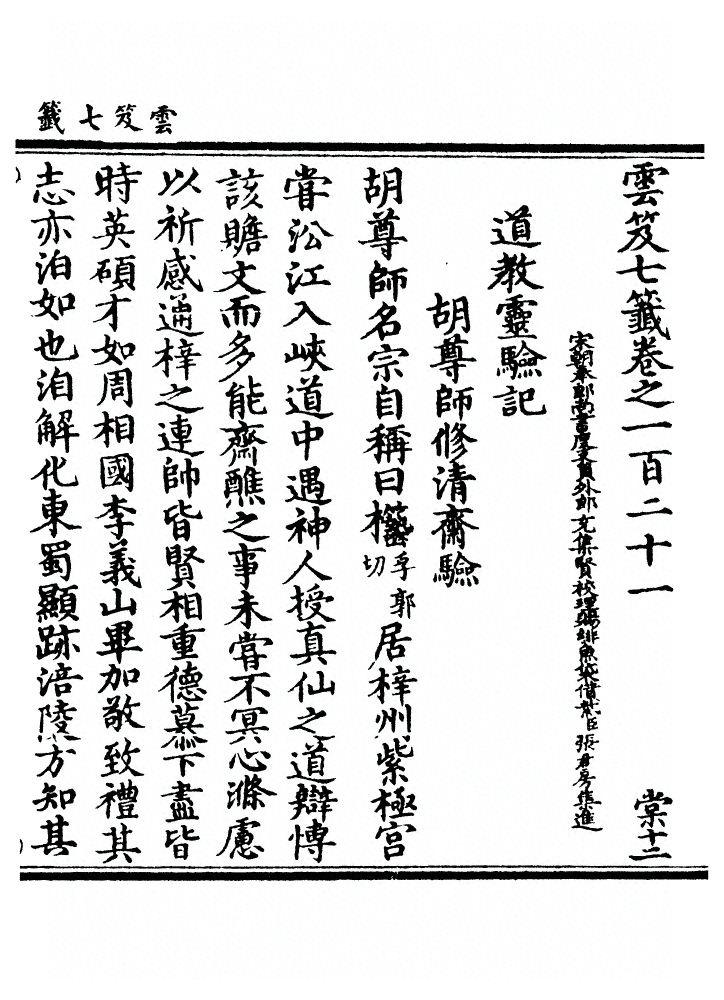 雲笈七籤
雲笈七籤卷之一百二十一 棠十二
宋朝奉郎尚書度支員外郎充集賢校理賜緋魚袋借紫臣張君房集進
道教靈驗記
胡尊師修清齋驗
胡尊師名宗自稱曰孚郭切居梓州紫極宮
甞㳂江入峽道中遇神人授真仙之道辯愽
該贍文而多能齋醮之事未甞不冥心滌慮
以祈感通梓之連帥皆賢相重德慕下盡皆
時英碩才如周相國李義山畢加敬致禮其
志亦泊如也洎解化東蜀顯跡涪陵方知其